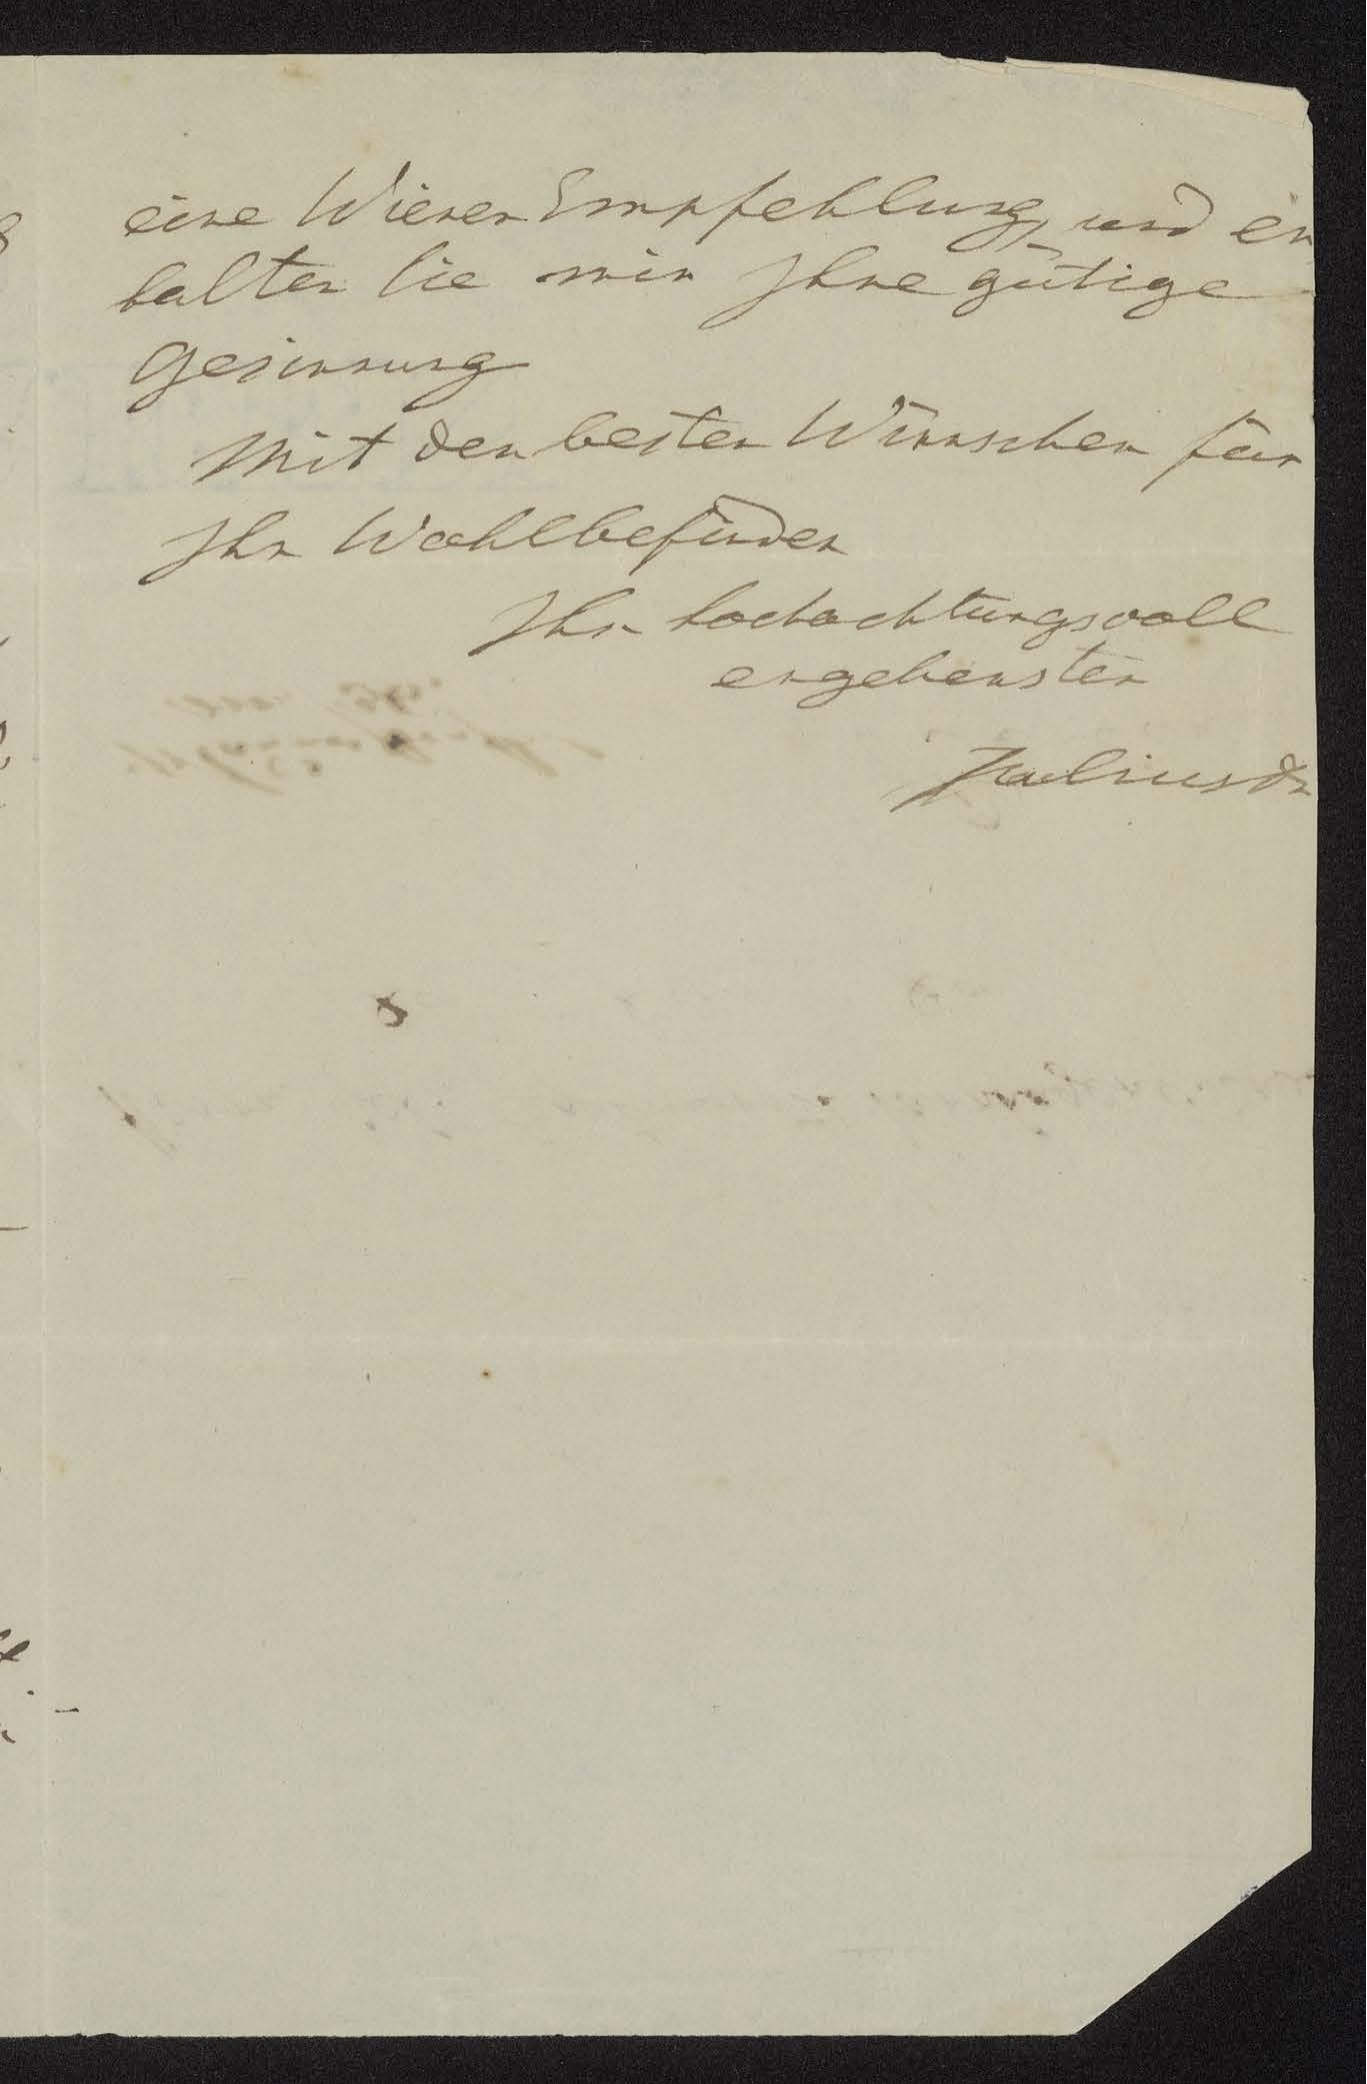 eine Wiener Empfehlung, und er
halten Sie mir Ihre gütige
Gesinnung
Mit den besten Wünschen für
Ihr Wohlbefinden
Ihr hochachtungsvoll
ergebenster
Julius